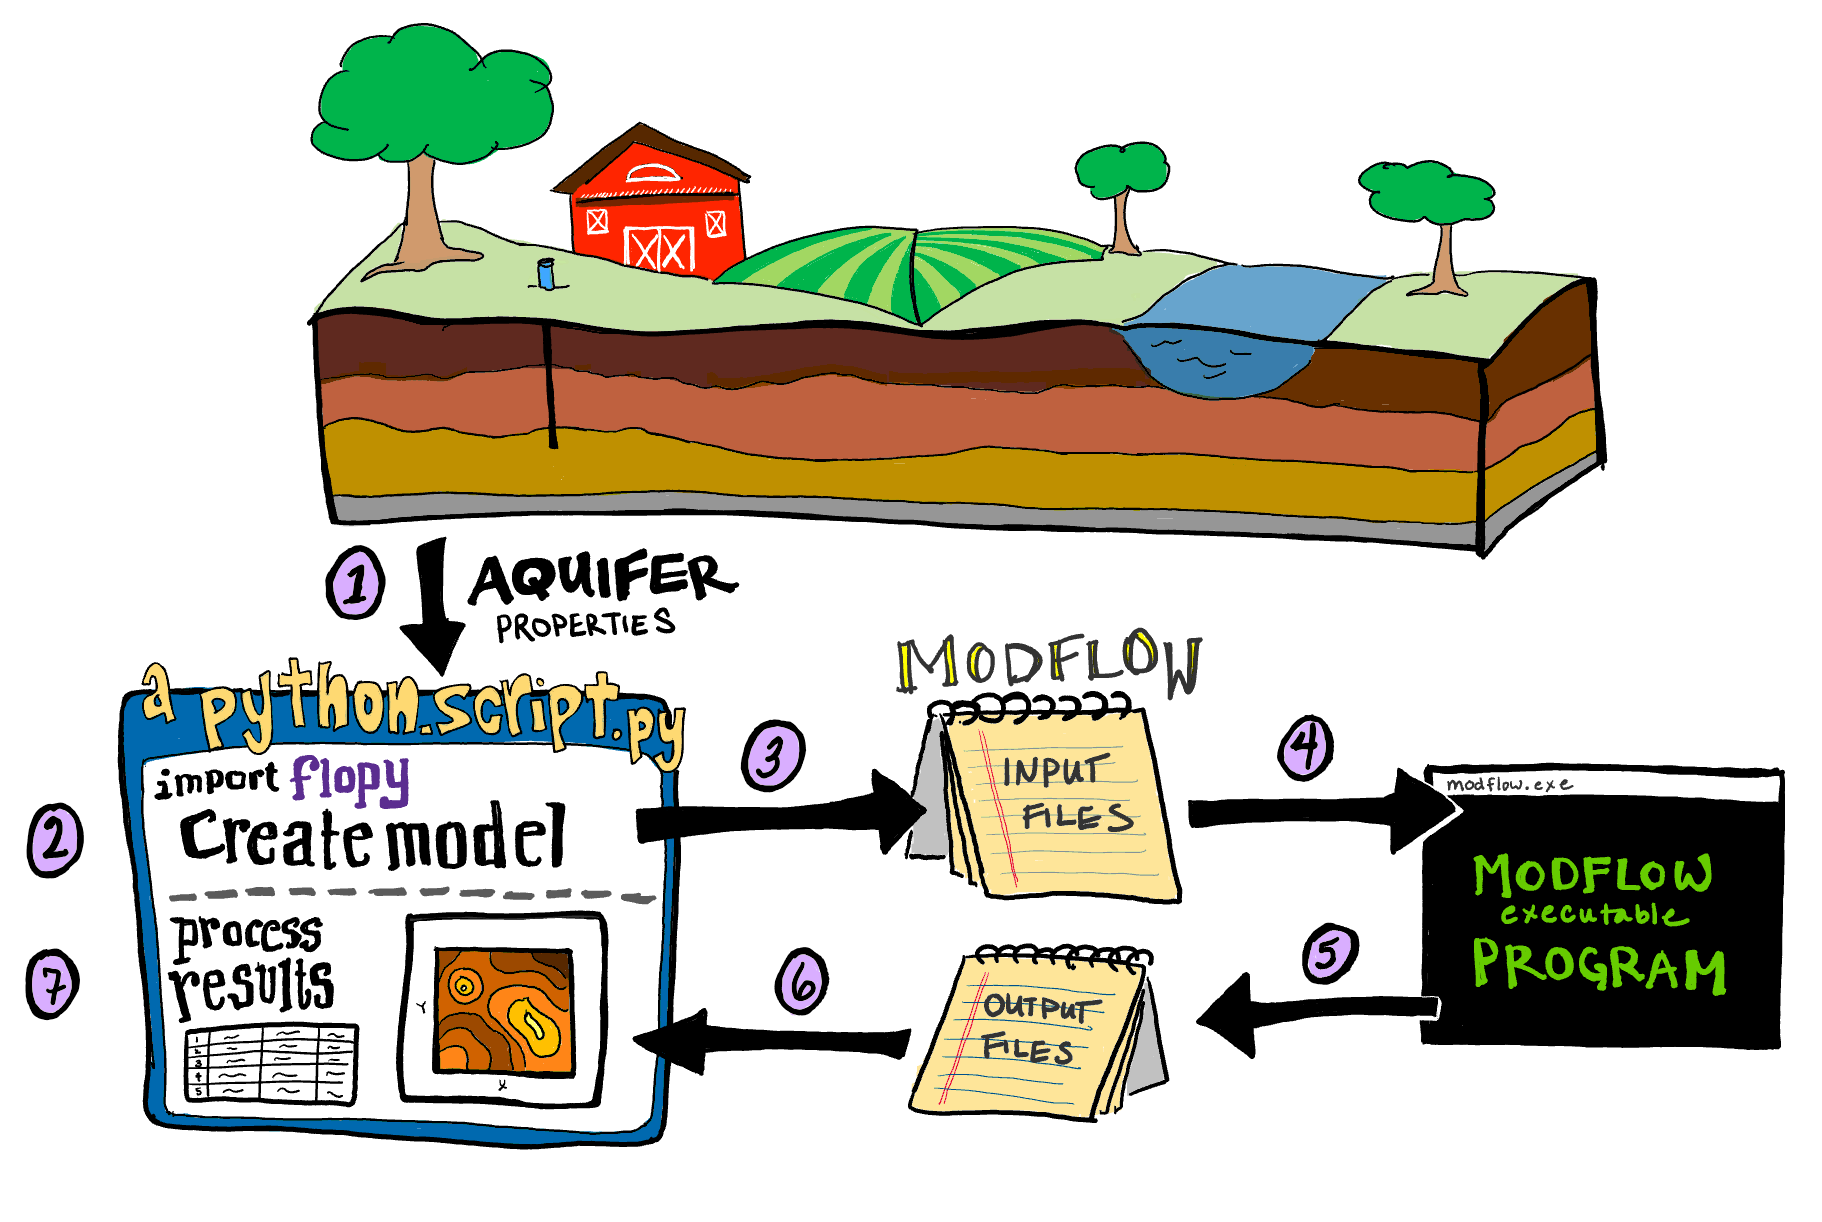 1
AQUIFER
PROPERTIES
a python.script.py
import flopy
2
Create model
process
results
7
1
2
3
4
5
Y
X
3
MODFLOW
INPUT
FILES
4
modflow.exe
MODFLOW
executable
PROGRAM
5
OUTPUT
FILES
6